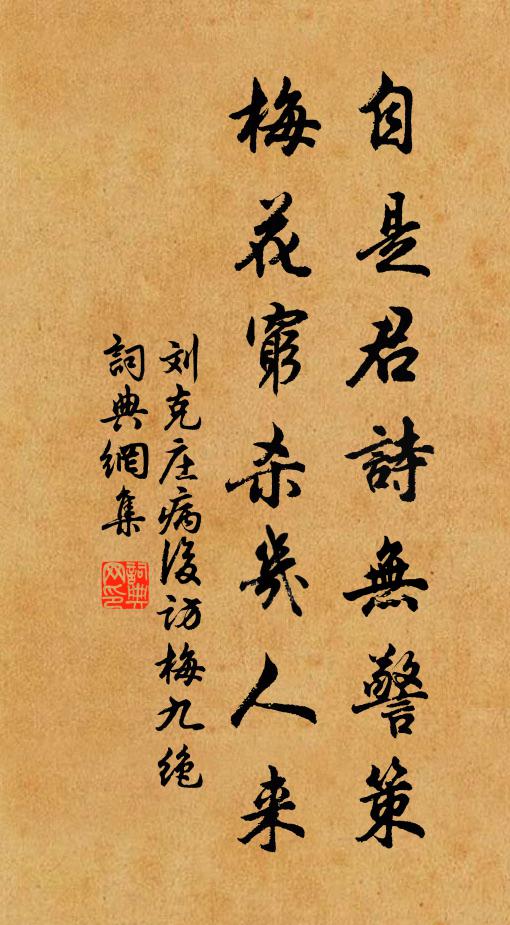 自是君詩無警策
梅花窮杀幾人来
刘克庄病後访梅九绝
詞典網集
詞典
网印